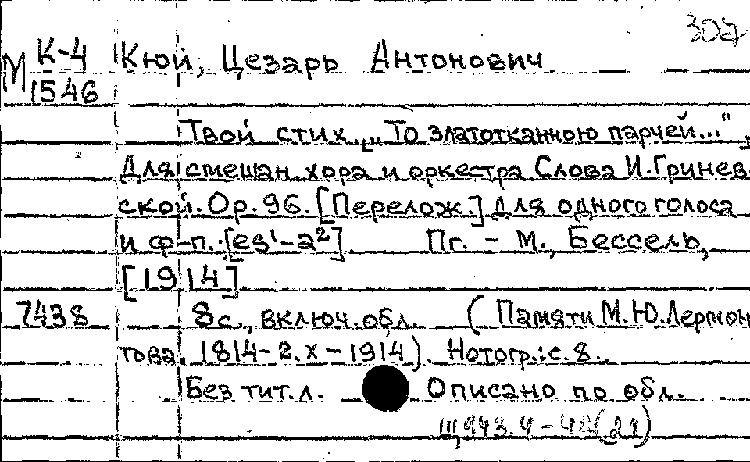 307
М К-4 Кюй, Цезарь Антонович
1546
Твой стих [„То златотканною парчей..."],
Для смешан. хора и оркестра Слова И. Гринев-
ской. Op. 96. [Перелож.] для одного голоса
и ф-п. [es¹-a²]. Пг. - М., Бессель,
[1914]
7438 8 с., включ. обл. (Памяти М.Ю.Лермон
това. 1814-2.X-1914). Нотогр.: с. 8.
Без тит. л. Описано по обл.
Щ943.4-48(21)